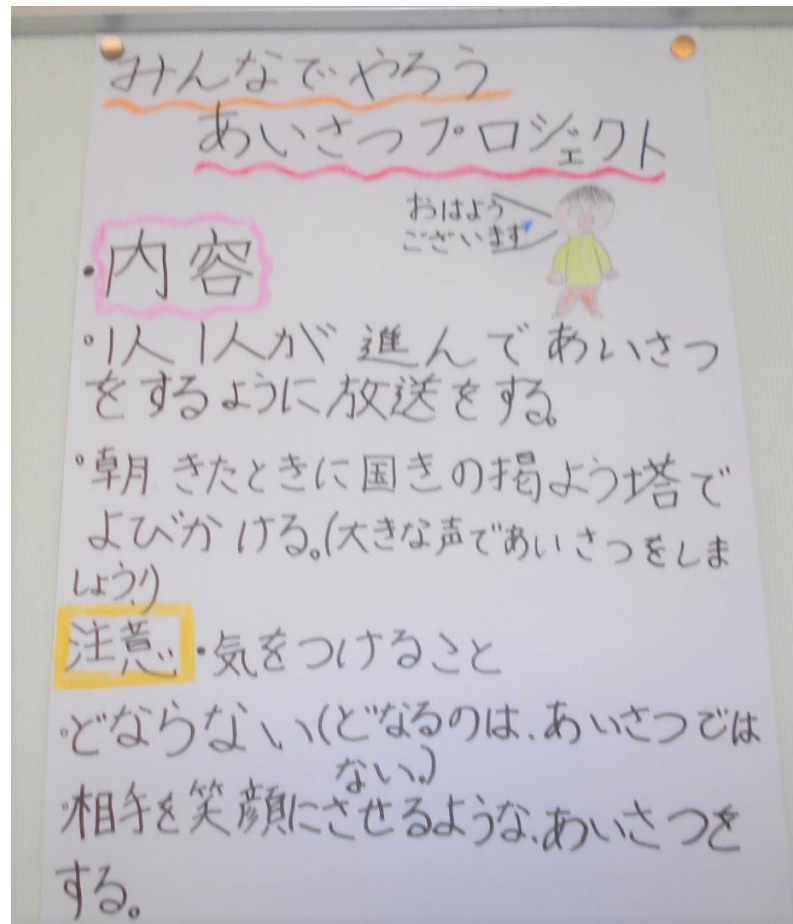 みんなでやろう
あいさつプロジェクト
おはよう
ございます
・内容
・1人1人が進んであいさつ
をするように放送をする。
・朝きたときに国きの掲よう塔で
よびかける。(大きな声であいさつをしま
しょう!)
注意・気をつけること
・どならない(どなるのは、あいさつでは
ない。)
・相手を笑顔にさせるような、あいさつを
する。